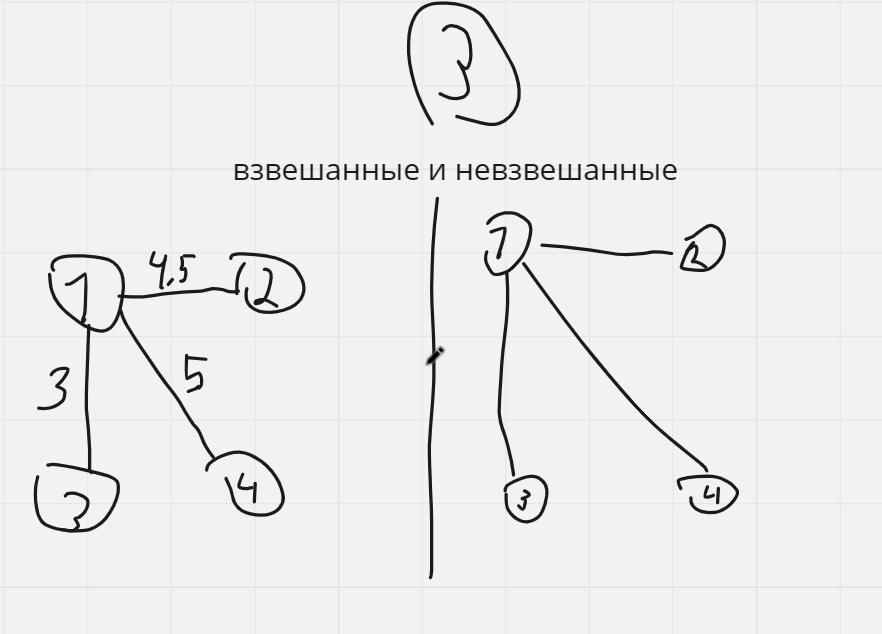 3
взвешанные и невзвешанные
1 4,5 2
3 5
3 4
1 2
3 4